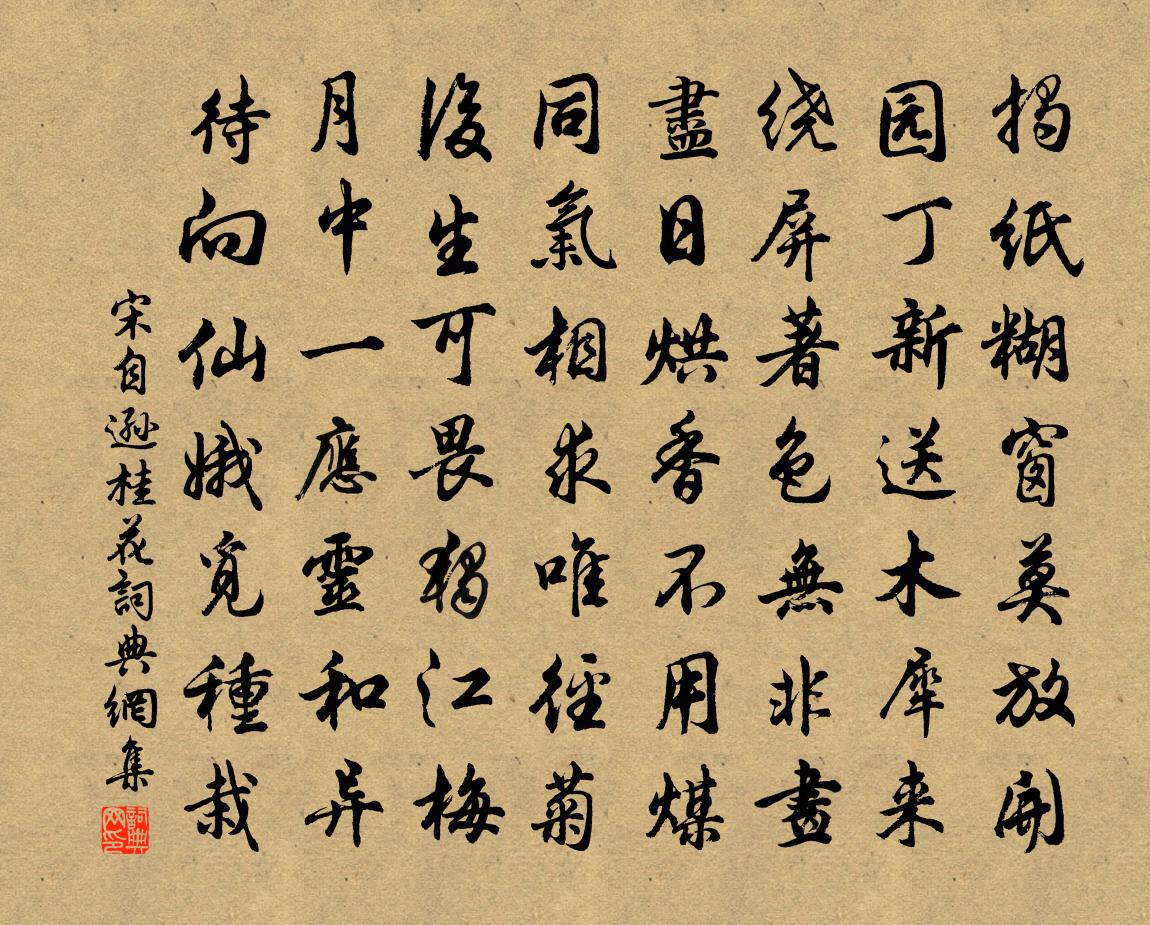 揭纸糊窗莫放開
园丁新送木犀来
绕屏著色無非畫
盡日烘香不用煤
同氣相求唯徑菊
後生可畏獨江梅
月中一應靈和异
待向仙娥觅種栽
宋自遜桂花詞典網集
詞典网印